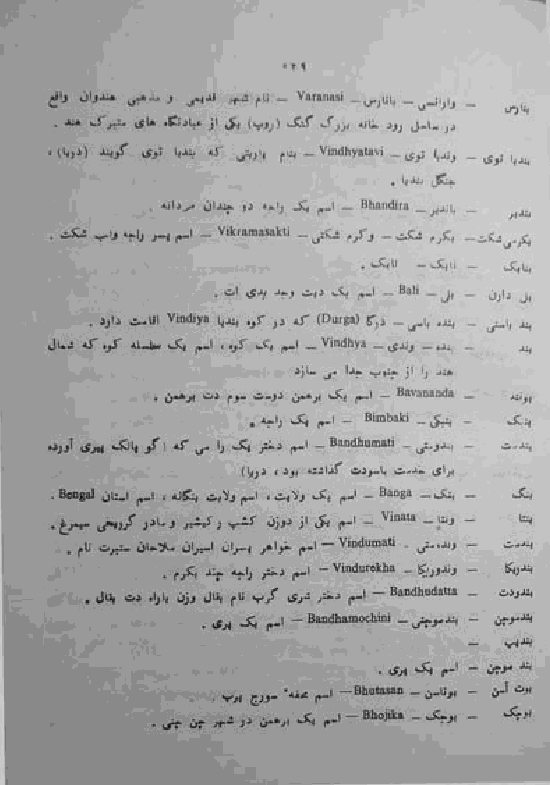 ۵۲۹
بنارس — وارانسی — بانارس — Varanasi — نام شهر قدیمی و مذهبی هندوان واقع
در ساحل رود خانه بزرگ گنگ (روپ) یکی از عبادتگاه های متبرک هند.
بندیا توی — وندیا توی — Vindhyatavi — بنام پاربتی که بندیا توی گویند (دریا)،
جنگل بندیا.
بندیر — باندیر — Bhandira — اسم یک راجه دو چندان مردانه.
بکرمی شکت — بکرم شکت — وکرم شکتی — Vikramasakti — اسم پسر راجه واپ شکت.
بنایک — نایک — نایک.
بل دارن — بلی — Bali — اسم یک دیت وجد بدی ات.
بند باسنی — بنده باسی — درگا (Durga) که در کوه بندیا Vindiya اقامت دارد.
بند — بنده — وندی — Vindhya — اسم یک کوه، اسم یک سلسله کوه که شمال
هند را از جنوب جدا می سازد
بونند — Bavananda — اسم یک برهمن دوست سوم دت برهمن.
بنبک — بنبکی — Bimbaki — اسم یک راجه.
بندمت — بندومتی — Bandhumati — اسم دختر یک را می که (گو پانک پیری آورده
برای خدمت باسودت گذاشته بود، دریا)
بنگ — بنگ — Banga — اسم یک ولایت، اسم ولایت بنگاله، اسم استان Bengal.
بنتا — ونتا — Vinata — اسم یکی از دوزن کشپ رکیشر و مادر گرر یعنی سیمرغ.
بندمت — وندمتی — Vindumati — اسم خواهر پسران امیران ملاحان ستبرت نام.
بندریکا — وندوریکا — Vindurekha — اسم دختر راجه چند بکرم.
بندودت — Bandhudatta — اسم دختر شری گرپ نام بقال وزن باراه دت بقال.
بندموچن — بندموچنی — Bandhamochini — اسم یک پری.
بندیپ —
بند موچن — اسم یک پری.
بوت آسن — بوتاسن — Bhutasan — اسم محفه سورج پرب.
بوجک — بوجک — Bhojika — اسم یک برهمن دو شهر چن چنی.